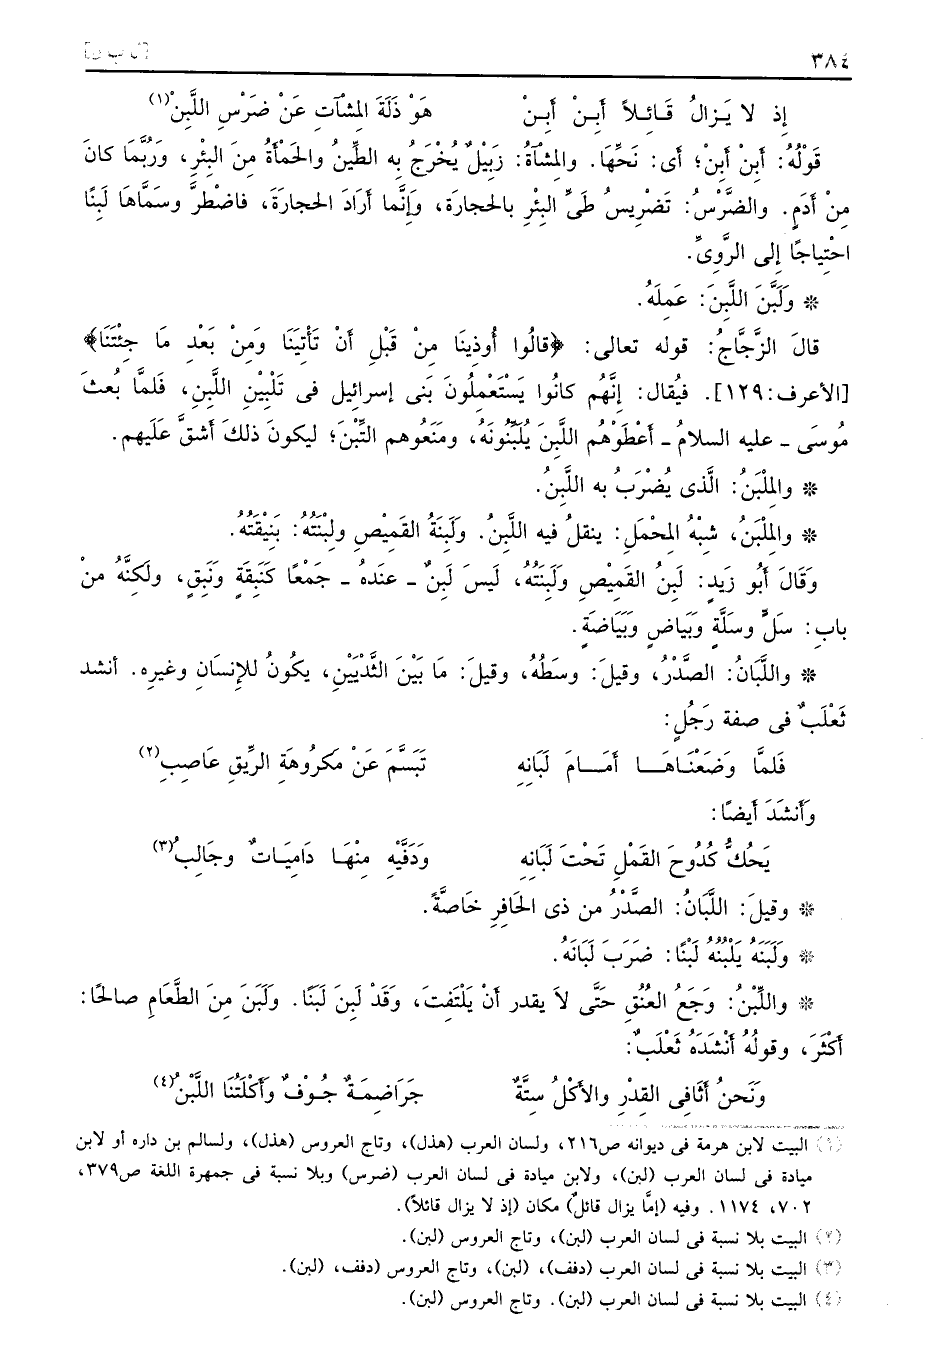 ٣٨٤
[ل ب ن]
إذ لا يَزالُ قَائلاً أَبِنْ أَبِنْ هَوْ ذَلَةَ المْشآت عَنْ ضَرْس اللَّبِنْ(١)
قَوْلُهُ: أَبنْ أَبنْ؛ أى: نَحِّها. والمِشآةُ: زَبيلٌ يُخْرَجُ به الطِّينُ والحَمْأةُ منَ البِئرِ، ورُبَّمَا كانَ
منْ أَدَمٍ. والضَّرْسُ: تَضْرِيسُ طَىِّ البِئْرِ بالحجارةِ، وَإنَّما أرَادَ الحجارَةَ، فاضْطرَّ وسَمَّاها لَبِنًا
احْتِياجًا إلى الرَّوِىِّ.
※ ولَبَّنَ اللَّبِنَ: عَمِلَهُ.
قالَ الزَّجَّاجُ: قوله تعالى: ﴿قالُوا أُوذينَا منْ قَبْلِ أنْ تَأْتِيَنَا وَمِنْ بَعْدِ مَا جِئْتَنَا﴾
[الأعرف: ١٢٩]. فيُقال: إنَّهُم كانُوا يَسْتَعْملُونَ بَنى إسرائيل فى تَلْبِيْنِ اللَّبِنِ، فَلمَّا بُعثَ
مُوسَى ـ عليه السلامُ ـ أَعْطَوْهُم اللَّبِنَ يُلَبِّنُونَهُ، ومَنَعُوهم التِّبْنَ؛ ليكونَ ذلكَ أشَقَّ عَلَيهِم.
※ والمِلْبَنُ: الَّذى يُضْرَبُ به اللَّبِنُ.
※ والمِلْبَنُ، شِبْهُ المَحْمَلِ: ينقلُ فيه اللَّبِنُ. ولَبِنَةُ القَميْصِ ولِبْنَتُهُ: بَنِيْقَتُهُ.
وَقَالَ أَبُو زَيدٍ: لَبِنُ القَمِيْصِ وَلَبِنَتُهُ، لَيسَ لَبِنٌ ـ عنْدَهُ ـ جَمْعًا كَنَبِقَةٍ ونَبِقٍ، ولكنَّهُ منْ
باب: سَلٍّ وسَلَّةٍ وبَيَاضٍ وبَيَاضَةٍ.
※ واللَّبَانُ: الصَّدْرُ، وقيلَ: وسَطُهُ، وقيلَ: مَا بَيْنَ الثَّدْيَيْنِ، يكونُ للإنسَانِ وغيرِه. أنشد
ثَعْلَبٌ فى صفة رَجُلٍ:
فَلمَّا وَضَعْنَاهَا أمَامَ لَبَانِهِ تَبَسَّمَ عَنْ مَكرُوهَةِ الرِّيقِ عَاصِبِ(٢)
وأنشَدَ أيضًا:
يَحُكُّ كُدُوحَ القَمْلِ تَحْتَ لَبَانِهِ وَدَفَّيْهِ مِنْهَا دَامِيَاتٌ وجَالِبُ(٣)
※ وقيلَ: اللَّبَانُ: الصَّدْرُ من ذى الحَافرِ خَاصَّةً.
※ ولَبَنَهُ يَلْبُنُهُ لَبْنًا: ضَرَبَ لَبَانَهُ.
※ واللَّبْنُ: وَجَعُ العُنُقِ حَتَّى لاَ يقدر أنْ يَلْتَفتَ، وقَدْ لَبِنَ لَبَنًا. ولَبَنَ مِنَ الطَّعَامِ صالحًا:
أكْثَرَ، وقولُهُ أنْشَدَهُ ثَعْلَبٌ:
ونَحنُ أثَافى القِدْرِ والأكْلُ ستَّةٌ جَرَاضمَةٌ جُوفٌ وأكْلَتُنَا اللَّبْنُ(٤)
(١) البيت لابن هرمة فى ديوانه ص٢١٦، ولسان العرب (هذل)، وتاج العروس (هذل)، ولسالم بن داره أو لابن
ميادة فى لسان العرب (لبن)، ولابن ميادة فى لسان العرب (ضرس) وبلا نسبة فى جمهرة اللغة ص٣٧٩،
٧٠٢، ١١٧٤. وفيه (إمَّا يزال قائلٌ) مكان (إذ لا يزال قائلاً).
(٢) البيت بلا نسبة فى لسان العرب (لبن)، وتاج العروس (لبن).
(٣) البيت بلا نسبة فى لسان العرب (دفف)، (لبن)، وتاج العروس (دفف، (لبن).
(٤) البيت بلا نسبة فى لسان العرب (لبن). وتاج العروس (لبن).